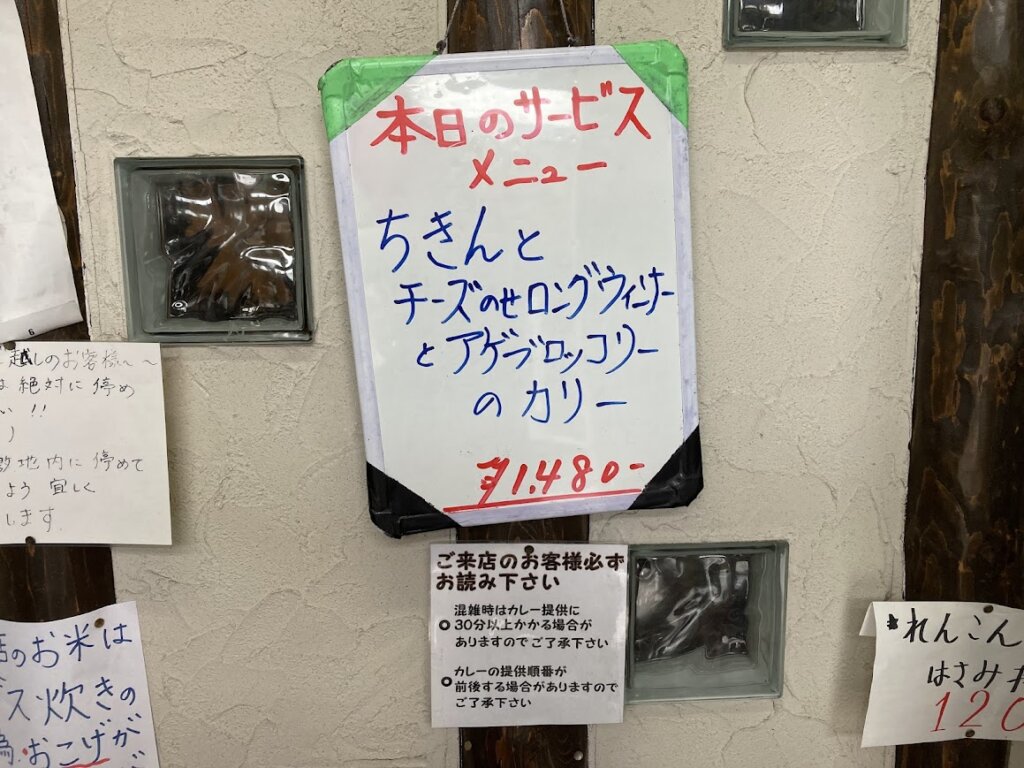 本日のサービス
メニュー
ちきんと
チーズのせロングウィンナー
とアゲブロッコリー
のカリー
¥1.480-
越しのお客様へ〜
絶対に停め
い!!
)
敷地内に停めて
よう宜しく
します.
店のお米は
ス炊きの
為.おこげが
ご来店のお客様必ず
お読み下さい
混雑時はカレー提供に
30分以上かかる場合が
ありますのでご了承下さい
カレーの提供順番が
前後する場合がありますので
ご了承下さい
れんこん
はさみ
120
6